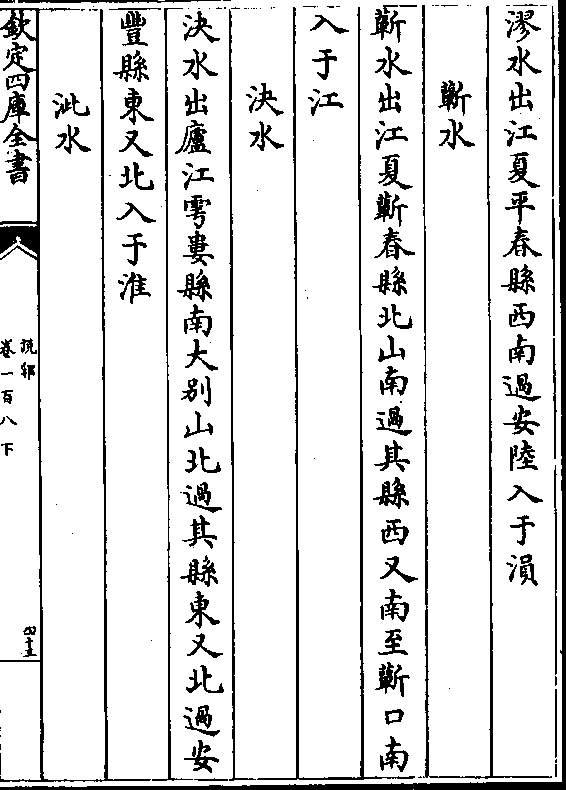 漻水出江夏平春縣西南過安陸入于溳
蘄水
蘄水出江夏蘄春縣北山南過其縣西又南至蘄口南
入于江
決水
決水出廬江雩婁縣南大别山北過其縣東又北過安
豐縣東又北入于淮
沘水
欽定四庫全書
說郛
卷一百八下
四十五